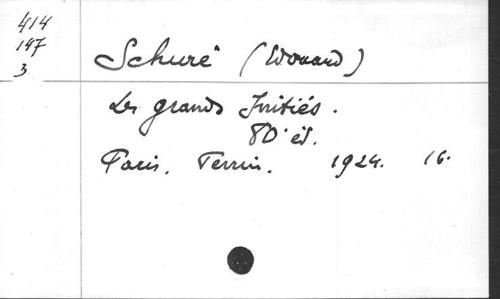 414
147
3
Schuré (Edouard)
Les grands Initiés.
80e éd.
Paris. Perrin. 1924. 16.